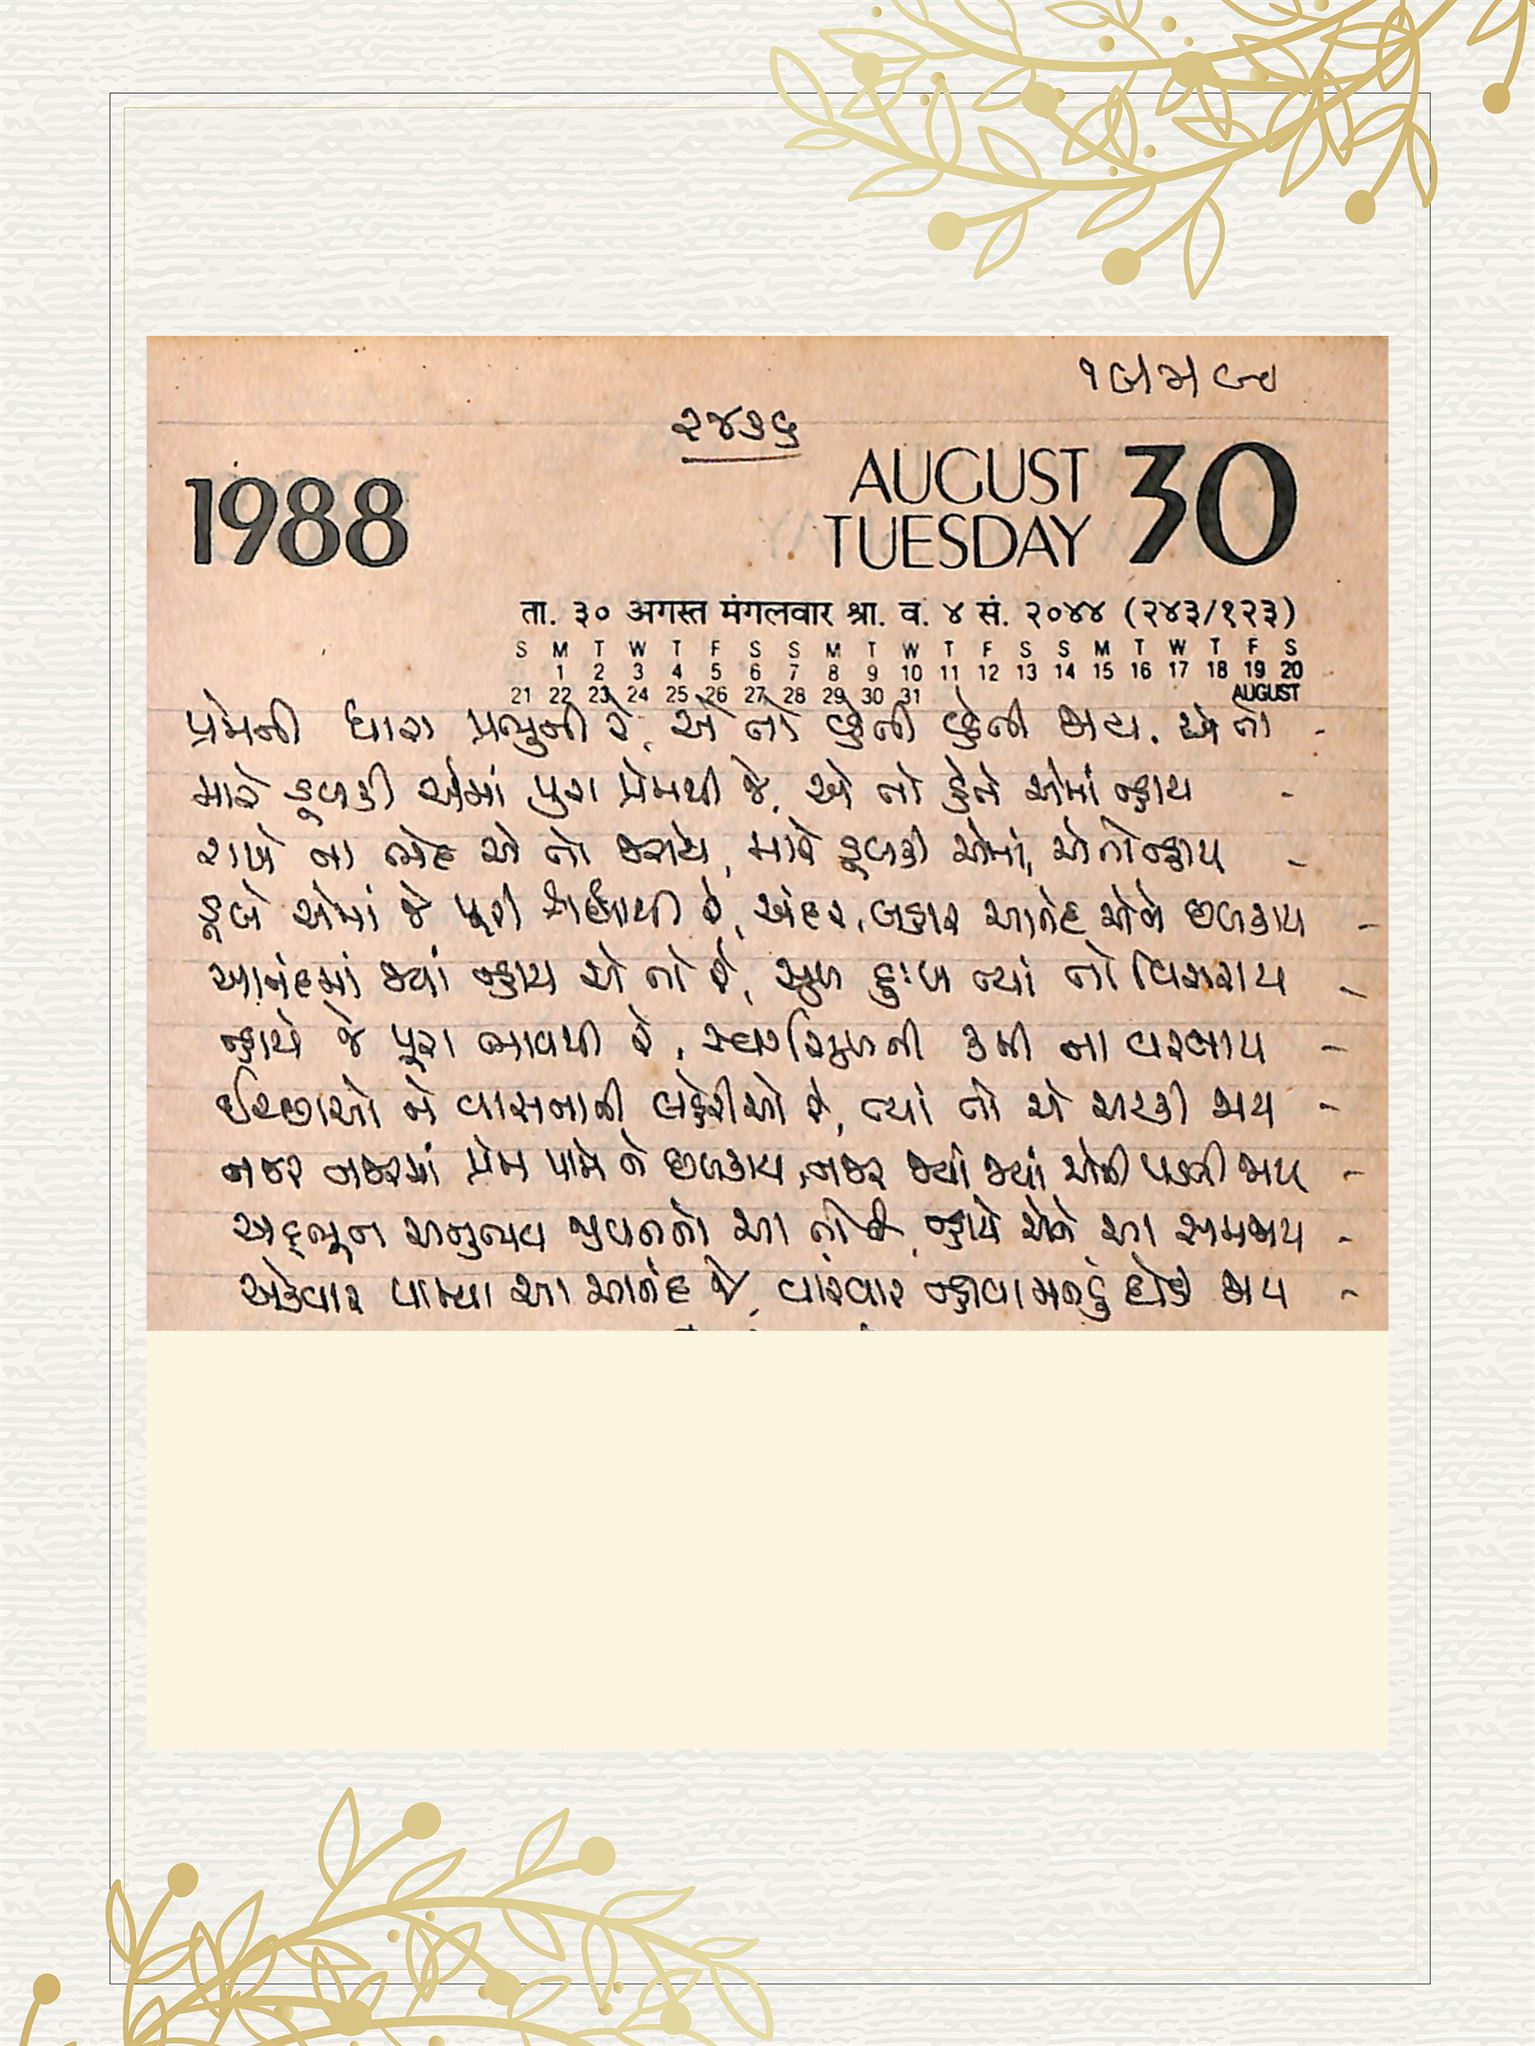 ૨૪૩૬
1988
AUGUST 30
TUESDAY
ता. ३० अगस्त मंगलवार श्रा. व. ४ सं. २०४४ (२४३/१२३)
S M T W T F S S M T W T F S S M T W T F S
1 2 3 4 5 6 7 8 9 10 11 12 13 14 15 16 17 18 19 20
21 22 23 24 25 26 27 28 29 30 31 AUGUST
પ્રેમની ધારા પ્રભુની રે, એ તો વ્હેતી વ્હેતી જાય. એ તો -
મારે ડૂબકી એમાં પુરા પ્રેમથી જે, એ તો એમાં ન્હાય -
રાખે ના ભેદ એ તો જરાયે, મારે ડૂબકી એમાં, એ તો ન્હાય -
ડૂબે એમાં જે પૂરી શ્રદ્ધાથી રે, અંદર, બહાર આનંદ એને છલકાય -
આનંદમાં જ્યાં ન્હાય એ તો રે, સુખ દુઃખ ત્યાં તો વિસરાય -
ન્હાયે જે પૂરા ભાવથી રે, ની કમી ના વરતાય -
ઈચ્છાઓ ને વાસનાની લહેરીઓ રે, ત્યાં તો એ સરકી જાય -
નજર નજરમાં પ્રેમ પામે ને છલકાય, નજર જ્યાં જ્યાં એની પડતી જાય -
અદ્ભૂત અનુભવ જીવનનો આ તો રે, ન્હાયે એને આ સમજાય -
એકવાર પામ્યા આ આનંદ જે, વારંવાર ન્હાવા મનડું દોડી જાય -